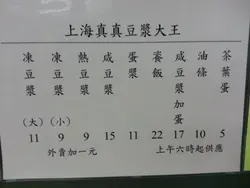 上海真真豆漿大王
凍豆漿(大) 11
凍豆漿(小) 9
熱豆漿 9
咸豆漿 15
蛋漿 11
粢飯 22
咸豆漿加蛋 17
油條 10
茶葉蛋 5
外賣加一元
上午六時起供應